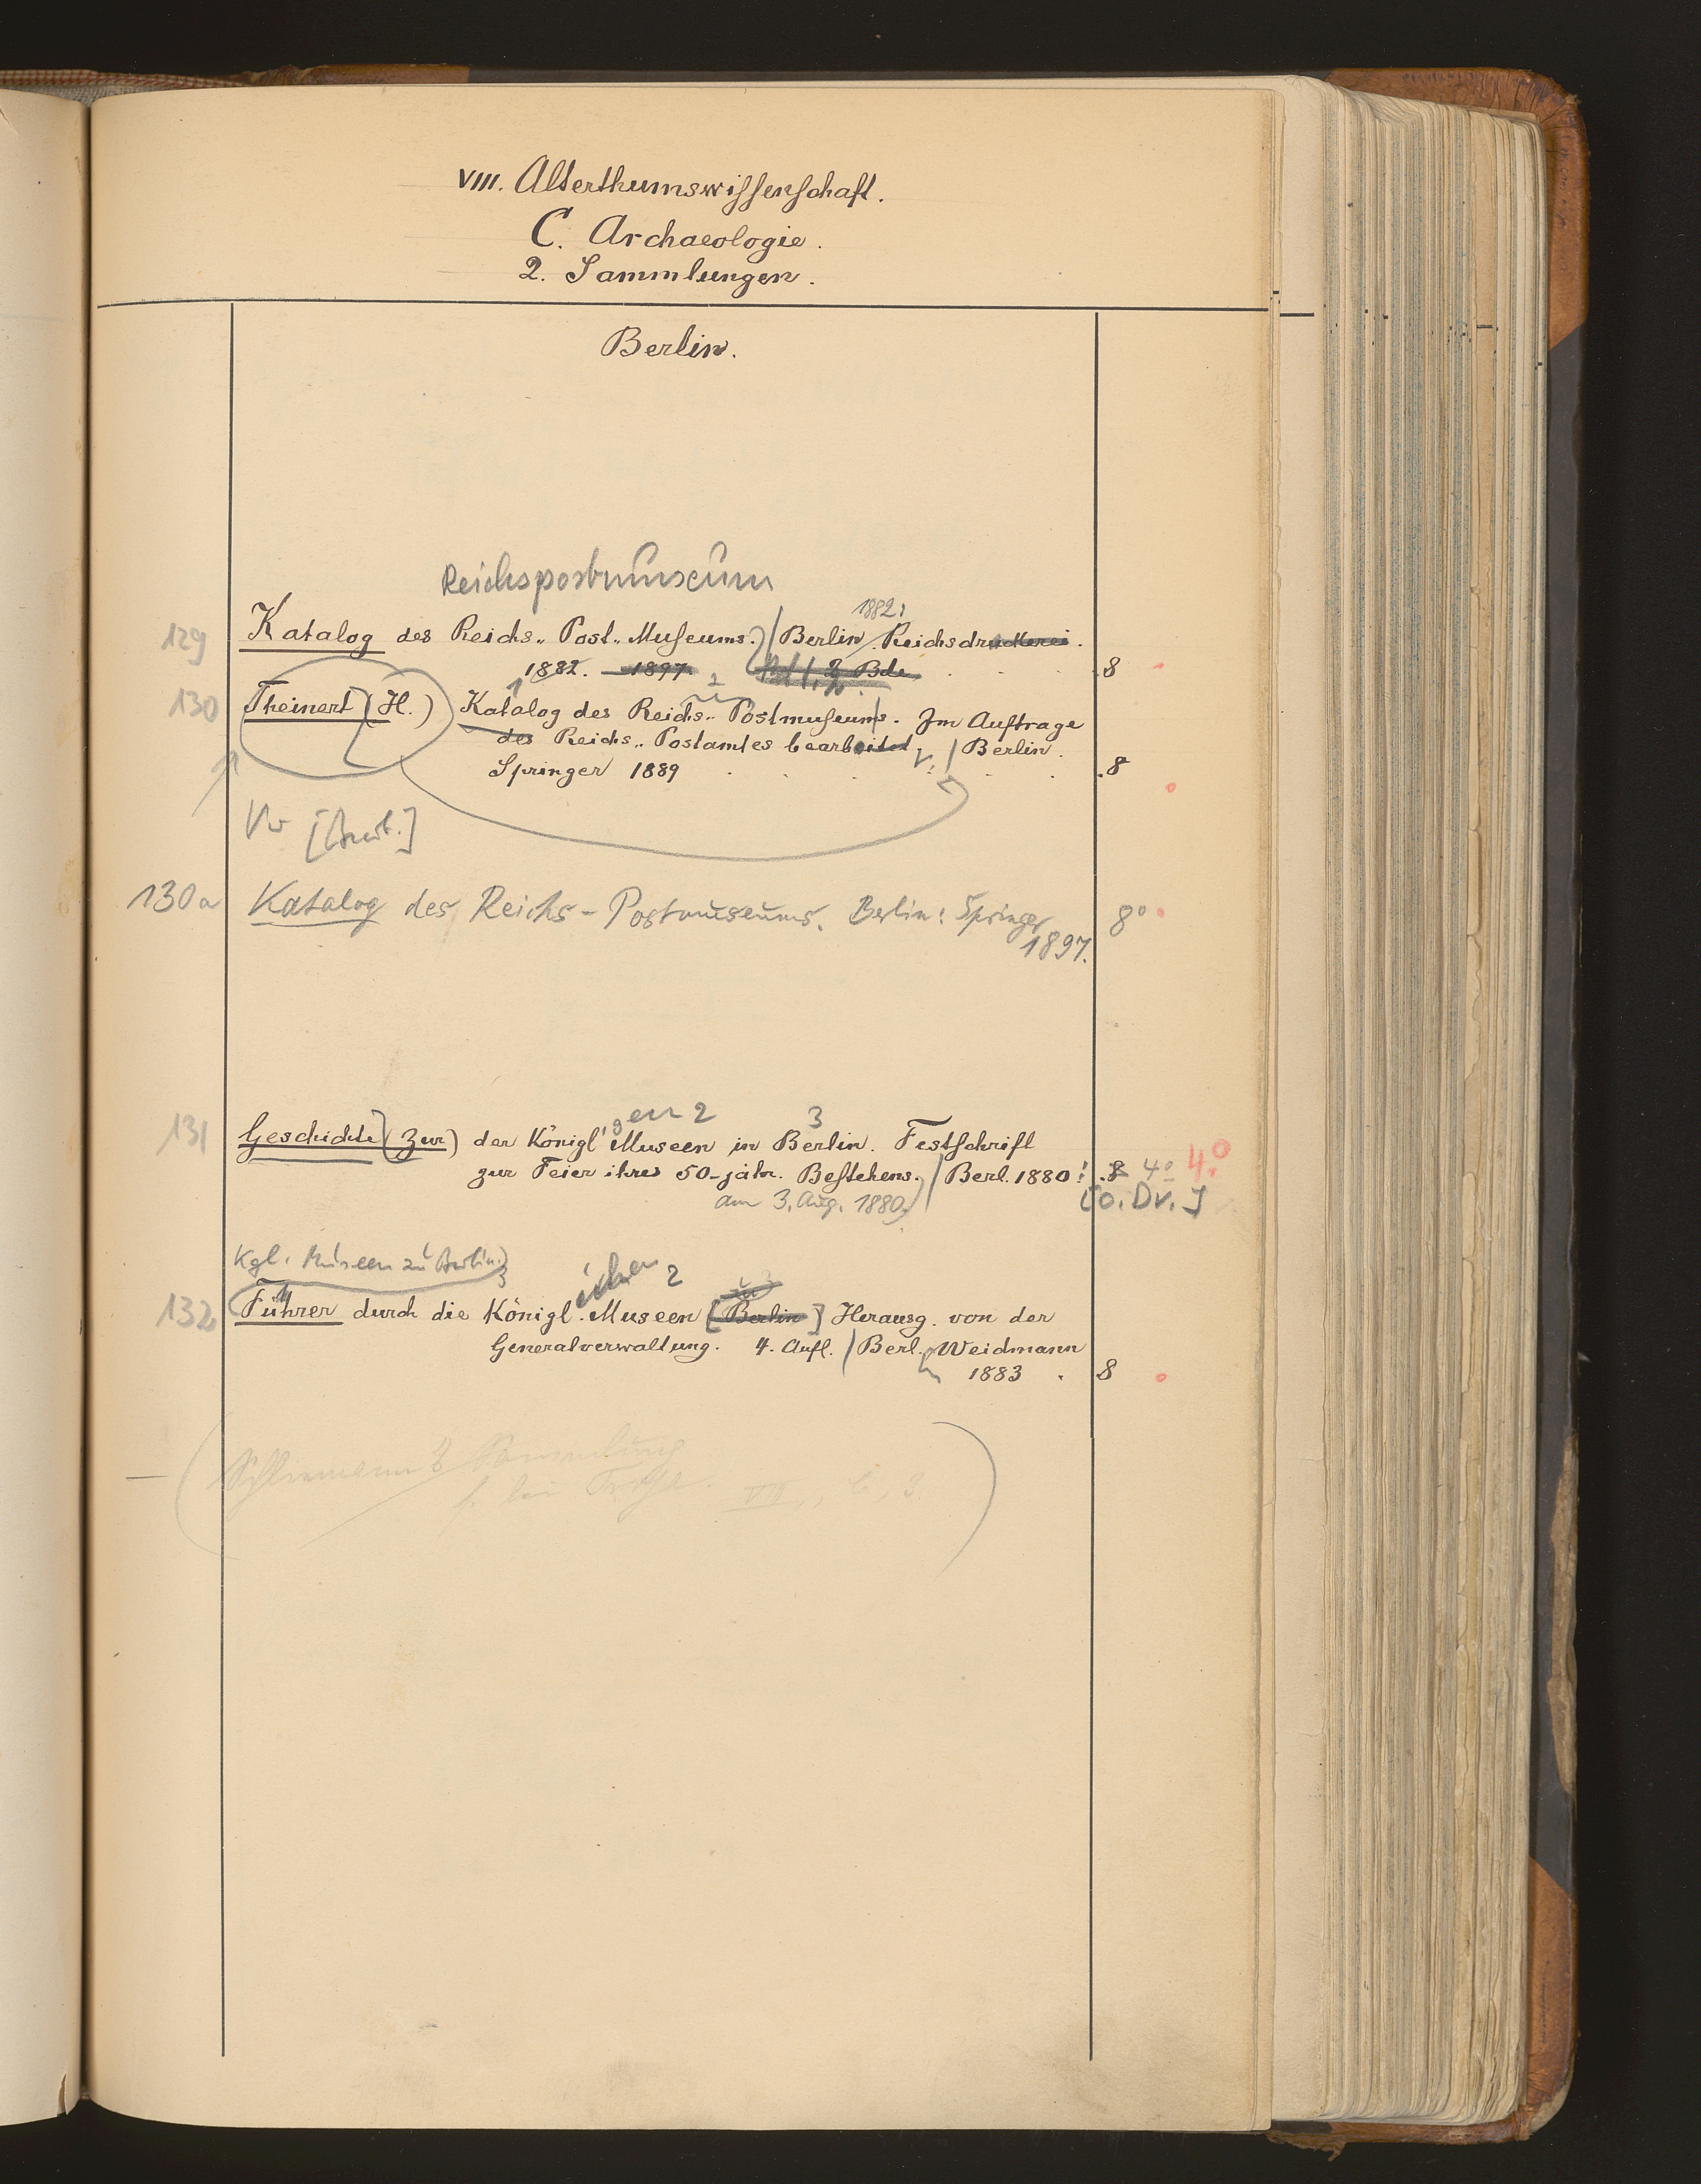 VIII. Alterthumswissenschaft.
C. Archaeologie.
2. Sammlungen.
Berlin.
Reichspostmuseum
1882:
129 Katalog des Reichs-Post-Museums. Berlin. Reichsdruckerei.
1882. 1897 2 Bde 8
130 Theinert (H.) Katalog des Reichs-Postmuseums. Im Auftrage
des Reichs-Postamtes bearbeitet. Berlin.
Springer 1889 8
130a Katalog des Reichs-Postmuseums. Berlin: Springer 8°
1897.
gen 2 3
131 Geschichte (Zur) der Königl. Museen in Berlin. Festschrift
zur Feier ihres 50-jähr. Bestehens. Berl. 1880 8 4° 4°
am 3. Aug. 1880. [o. Dr.]
Kgl. Museen zu Berlin.
ichen 2
132 Führer durch die Königl. Museen [Berlin] Herausg. von der
Generalverwaltung. 4. Aufl. Berl. Weidmann
1883 8
Schliemann's Sammlung